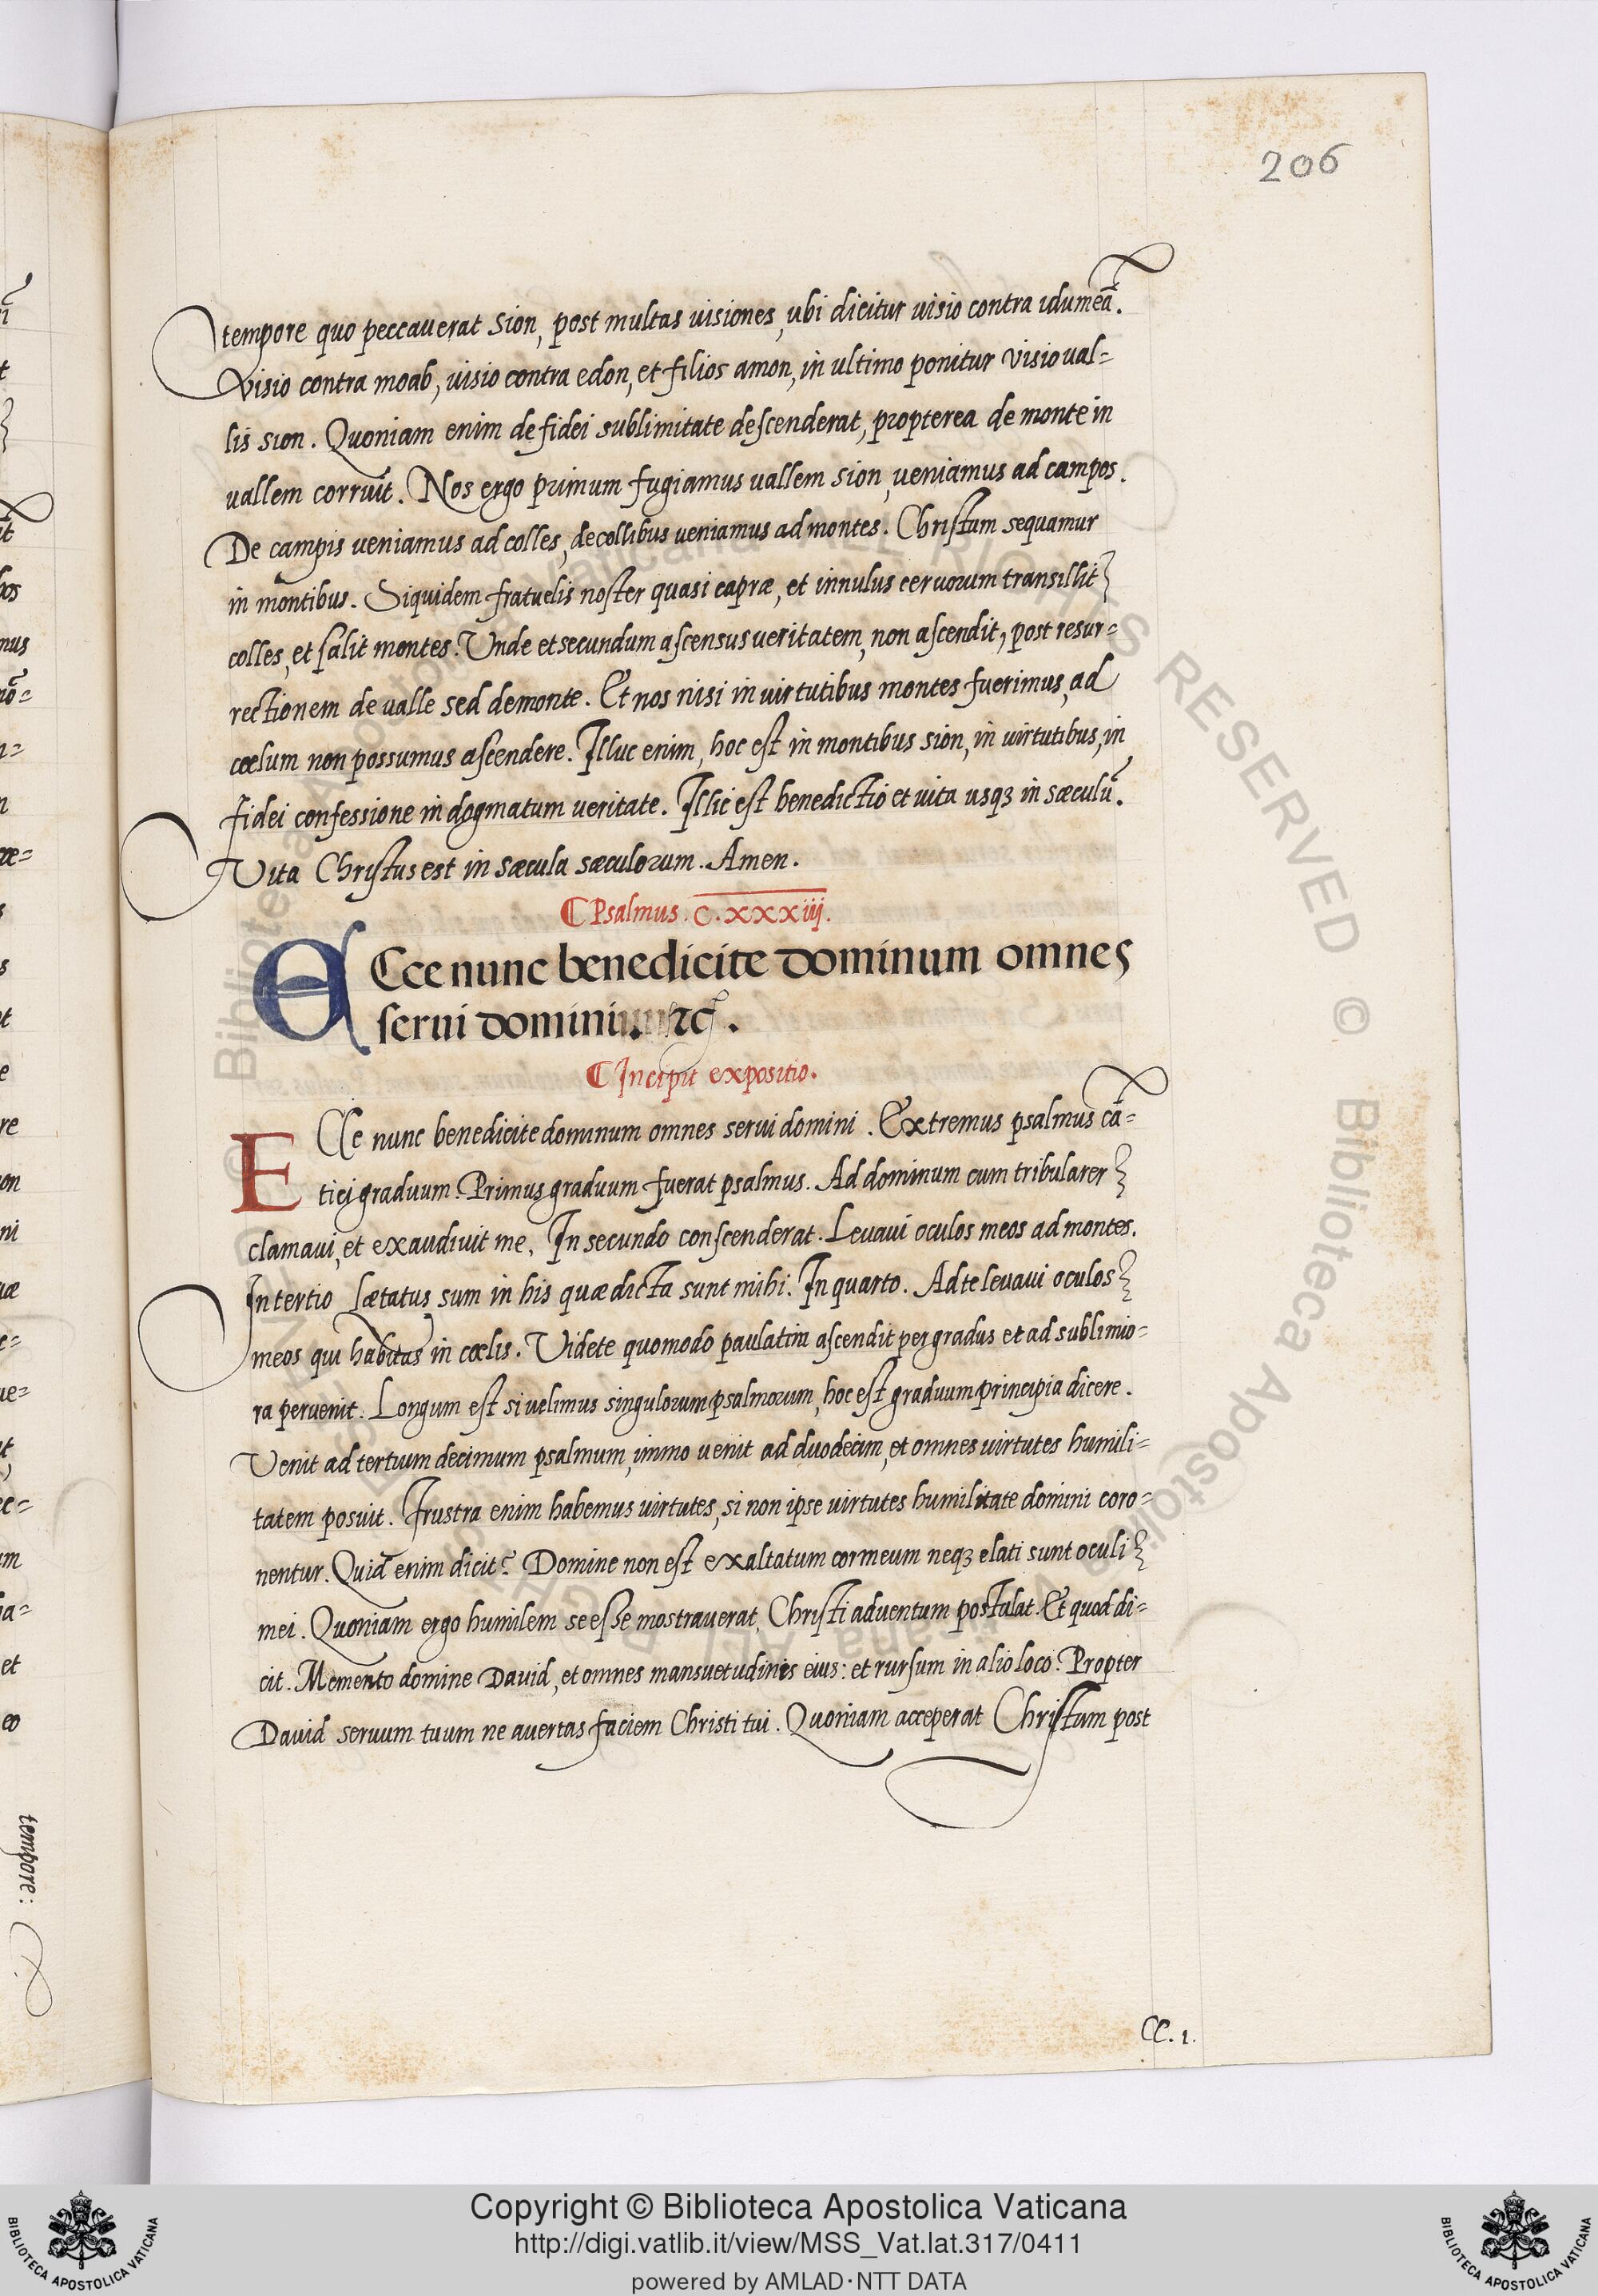 206
tempore quo peccauerat Sion, post multas uisiones, ubi dicitur uisio contra idumeā.
Visio contra moab, uisio contra edon, et filios amon, in ultimo ponitur visio ual=
lis sion. Quoniam enim de fidei sublimitate descenderat, propterea de monte in
uallem corruit. Nos ergo primum fugiamus uallem sion, ueniamus ad campos.
De campis veniamus ad colles, de collibus veniamus ad montes. Christum sequamur
in montibus. Siquidem fratuelis noster quasi capræ, et innulus ceruorum transillit
colles, et salit montes. Unde et secundum ascensus veritatem, non ascendit, post resur=
rectionem de ualle sed de monte. Et nos nisi in uirtutibus montes fuerimus, ad
cœlum non possumus ascendere. Illuc enim, hoc est in montibus sion, in uirtutibus, in
fidei confessione in dogmatum ueritate. Illic est benedictio et uita usqȝ in sæculū.
Vita Christus est in sæcula sæculorum. Amen.
Psalmus. C.XXXiij.
ECce nunc benedicite dominum omnes
serui domini
Incipit expositio.
ECce nunc benedicite dominum omnes serui domini. Extremus psalmus cā=
tici graduum. Primus graduum fuerat psalmus. Ad dominum cum tribularer
clamaui, et exaudiuit me. In secundo conscenderat. Leuaui oculos meos ad montes.
In tertio Lætatus sum in his quæ dicta sunt mihi. In quarto. Ad te leuaui oculos
meos qui habitas in cœlis. Videte quomodo paulatim ascendit per gradus et ad sublimio=
ra peruenit. Longum est si uelimus singulorum psalmorum, hoc est graduum principia dicere.
Venit ad tertium decimum psalmum, immo uenit ad duodecim, et omnes uirtutes humili=
tatem posuit. Frustra enim habemus uirtutes, si non ipse uirtutes humilitate domini coro=
nentur. Quid enim dicit? Domine non est exaltatum cor meum neqȝ elati sunt oculi
mei. Quoniam ergo humilem se esse mostrauerat, Christi aduentum postulat. Et quod di=
cit. Memento domine David, et omnes mansuetudinis eius: et rursum in alio loco. Propter
David seruum tuum ne auertas faciem Christi tui. Quoniam acceperat Christum post
CC. 1.
tempore:
Copyright © Biblioteca Apostolica Vaticana
http://digi.vatlib.it/view/MSS_Vat.lat.317/0411
powered by AMLAD·NTT DATA